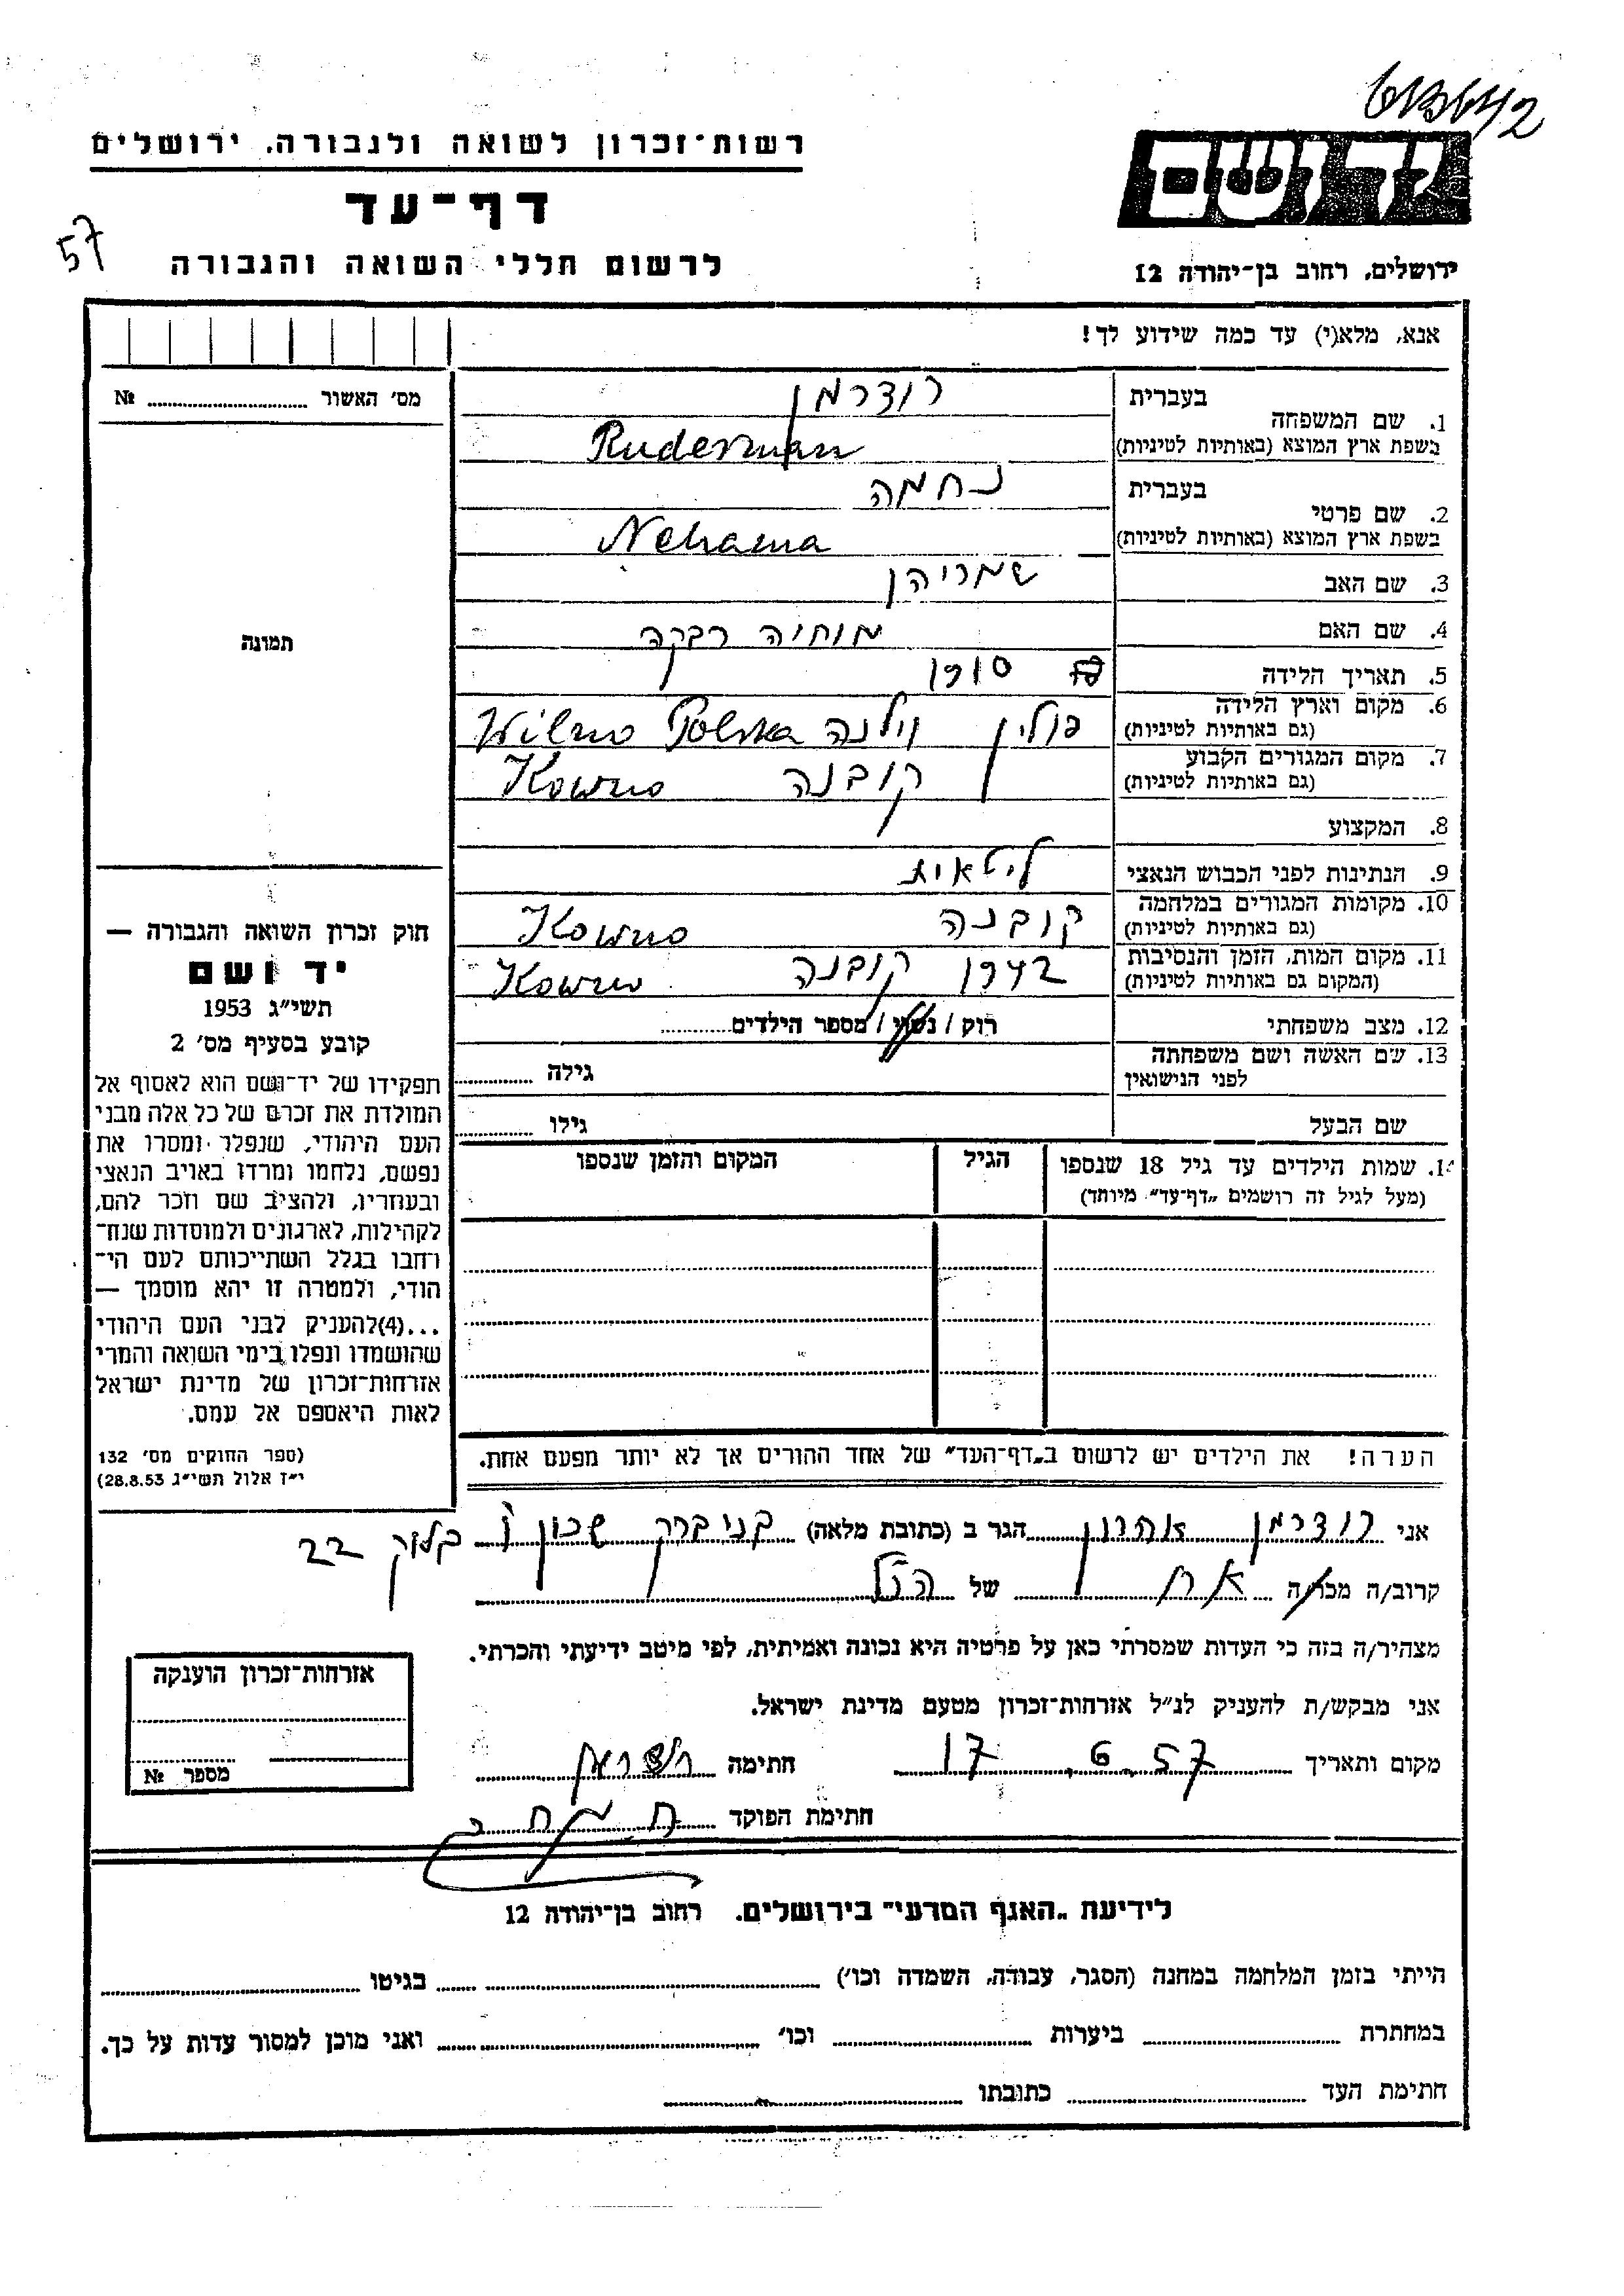 רשות־זכרון לשואה ולגבורה. ירושלים
דף־עד
לרשום חללי השואה והגבורה
57
ידושם
ירושלים, רחוב בן־יהודה 12
אנא, מלא(י) עד כמה שידוע לך!
מס׳ האשור № 
תמונה
1. שם המשפחה בעברית רודרמן
בשפת ארץ המוצא (באותיות לטיניות) Ruderman
2. שם פרטי בעברית נחמה
בשפת ארץ המוצא (באותיות לטיניות) Nehama
3. שם האב
4. שם האם רבקה
5. תאריך הלידה
6. מקום וארץ הלידה (גם באותיות לטיניות) פולין וילנה Wilno Polska
7. מקום המגורים הקבוע (גם באותיות לטיניות) קובנה Kowno
8. המקצוע
9. הנתינות לפני הכבוש הנאצי ליטאית
10. מקומות המגורים במלחמה (גם באותיות לטיניות) קובנה Kowno
11. מקום המות, הזמן והנסיבות (המקום גם באותיות לטיניות) 1942 קובנה Kowno
12. מצב משפחתי רוק / נשוי / מספר הילדים
13. שם האשה ושם משפחתה לפני הנישואין גילה
שם הבעל גילו
14. שמות הילדים עד גיל 18 שנספו הגיל המקום והזמן שנספו
(מעל לגיל זה רושמים „דף־עד״ מיוחד)
הערה! את הילדים יש לרשום ב„דף־העד״ של אחד ההורים אך לא יותר מפעם אחת.
חוק זכרון השואה והגבורה —
יד ושם
תשי״ג 1953
קובע בסעיף מס׳ 2
תפקידו של יד־ושם הוא לאסוף אל
המולדת את זכרם של כל אלה מבני
העם היהודי, שנפלו ומסרו את
נפשם, נלחמו ומרדו באויב הנאצי
ובעוזריו, ולהציב שם וזכר להם,
לקהילות, לארגונים ולמוסדות שנח־
רחבו בגלל השתייכותם לעם הי־
הודי, ולמטרה זו יהא מוסמך —
...(4)להעניק לבני העם היהודי
שהושמדו ונפלו בימי השואה והמרי
אזרחות־זכרון של מדינת ישראל
לאות היאספם אל עמם.
(ספר החוקים מס׳ 132
י״ז אלול תשי״ג 28.8.53)
אני רודרמן אהרון הגר ב (כתובת מלאה) בני ברק שכון ו׳ בלוק 22
קרוב/ה מכר/ה אח של הנ״ל
מצהיר/ה בזה כי העדות שמסרתי כאן על פרטיה היא נכונה ואמיתית, לפי מיטב ידיעתי והכרתי.
אני מבקש/ת להעניק לנ״ל אזרחות־זכרון מטעם מדינת ישראל.
מקום ותאריך 17.6.57 חתימה
חתימת הפוקד
אזרחות־זכרון הוענקה
מספר №
לידיעת „האגף המדעי״ בירושלים. רחוב בן־יהודה 12
הייתי בזמן המלחמה במחנה (הסגר, עבודה, השמדה וכו׳) בגיטו
במחתרת ביערות וכו׳ ואני מוכן למסור עדות על כך.
חתימת העד כתובתו